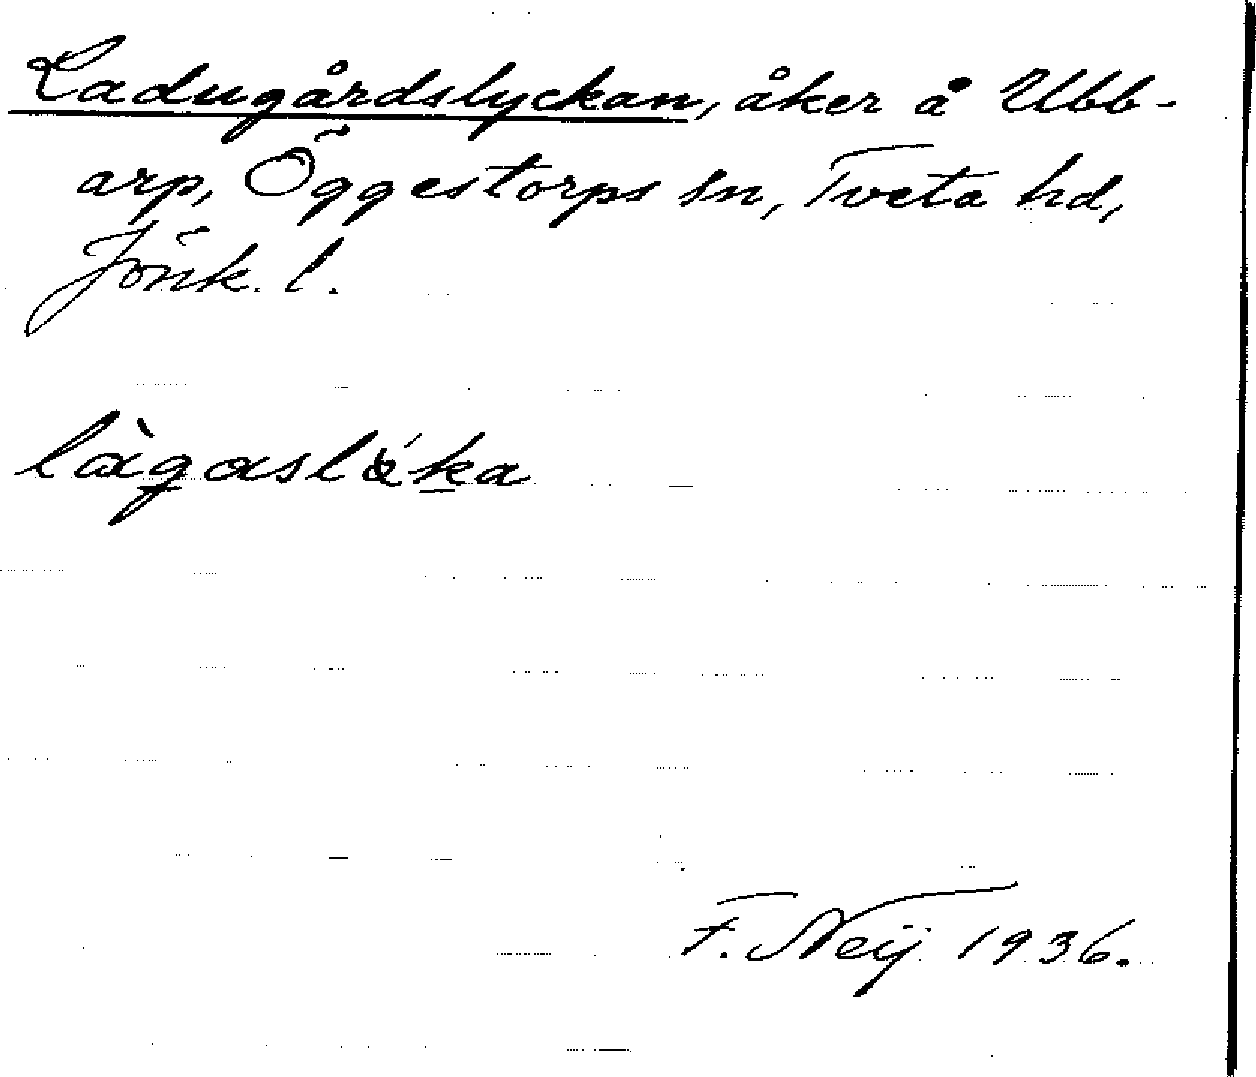 Ladugårdslyckan, åker å Ubb-
arp, Öggestorps sn, Tveta hd,
Jönk. l.
F. Neij 1936.